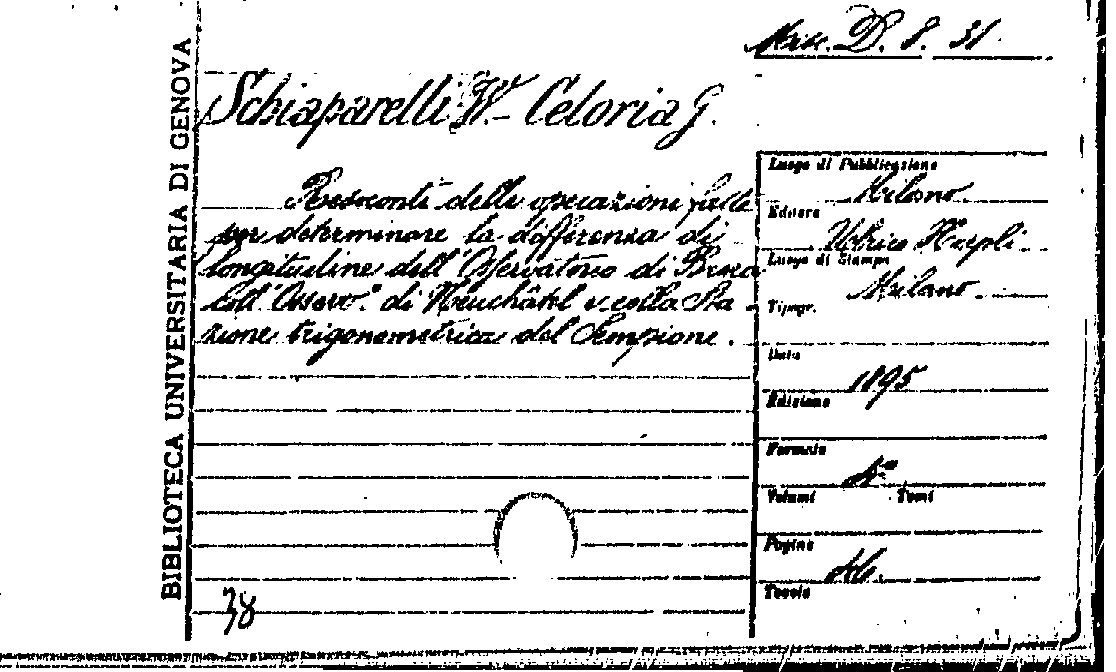 Misc. D. 8. 31.
BIBLIOTECA UNIVERSITARIA DI GENOVA
Schiaparelli W. - Celoria G.
Resoconti delle operazioni fatte
per determinare la differenza di
longitudine dell'Osservatorio di Brera
coll'Osserv.° di Neuchâtel e colla Sta
zione trigonometrica del Sempione.
Luogo di Pubblicazione
Milano
Editore
Ulrico Hoepli
Luogo di Stampa
Milano
Tipogr.
Data
1895
Edizione
Formato
4°
Volumi Tomi
Pagine
Tavole
38